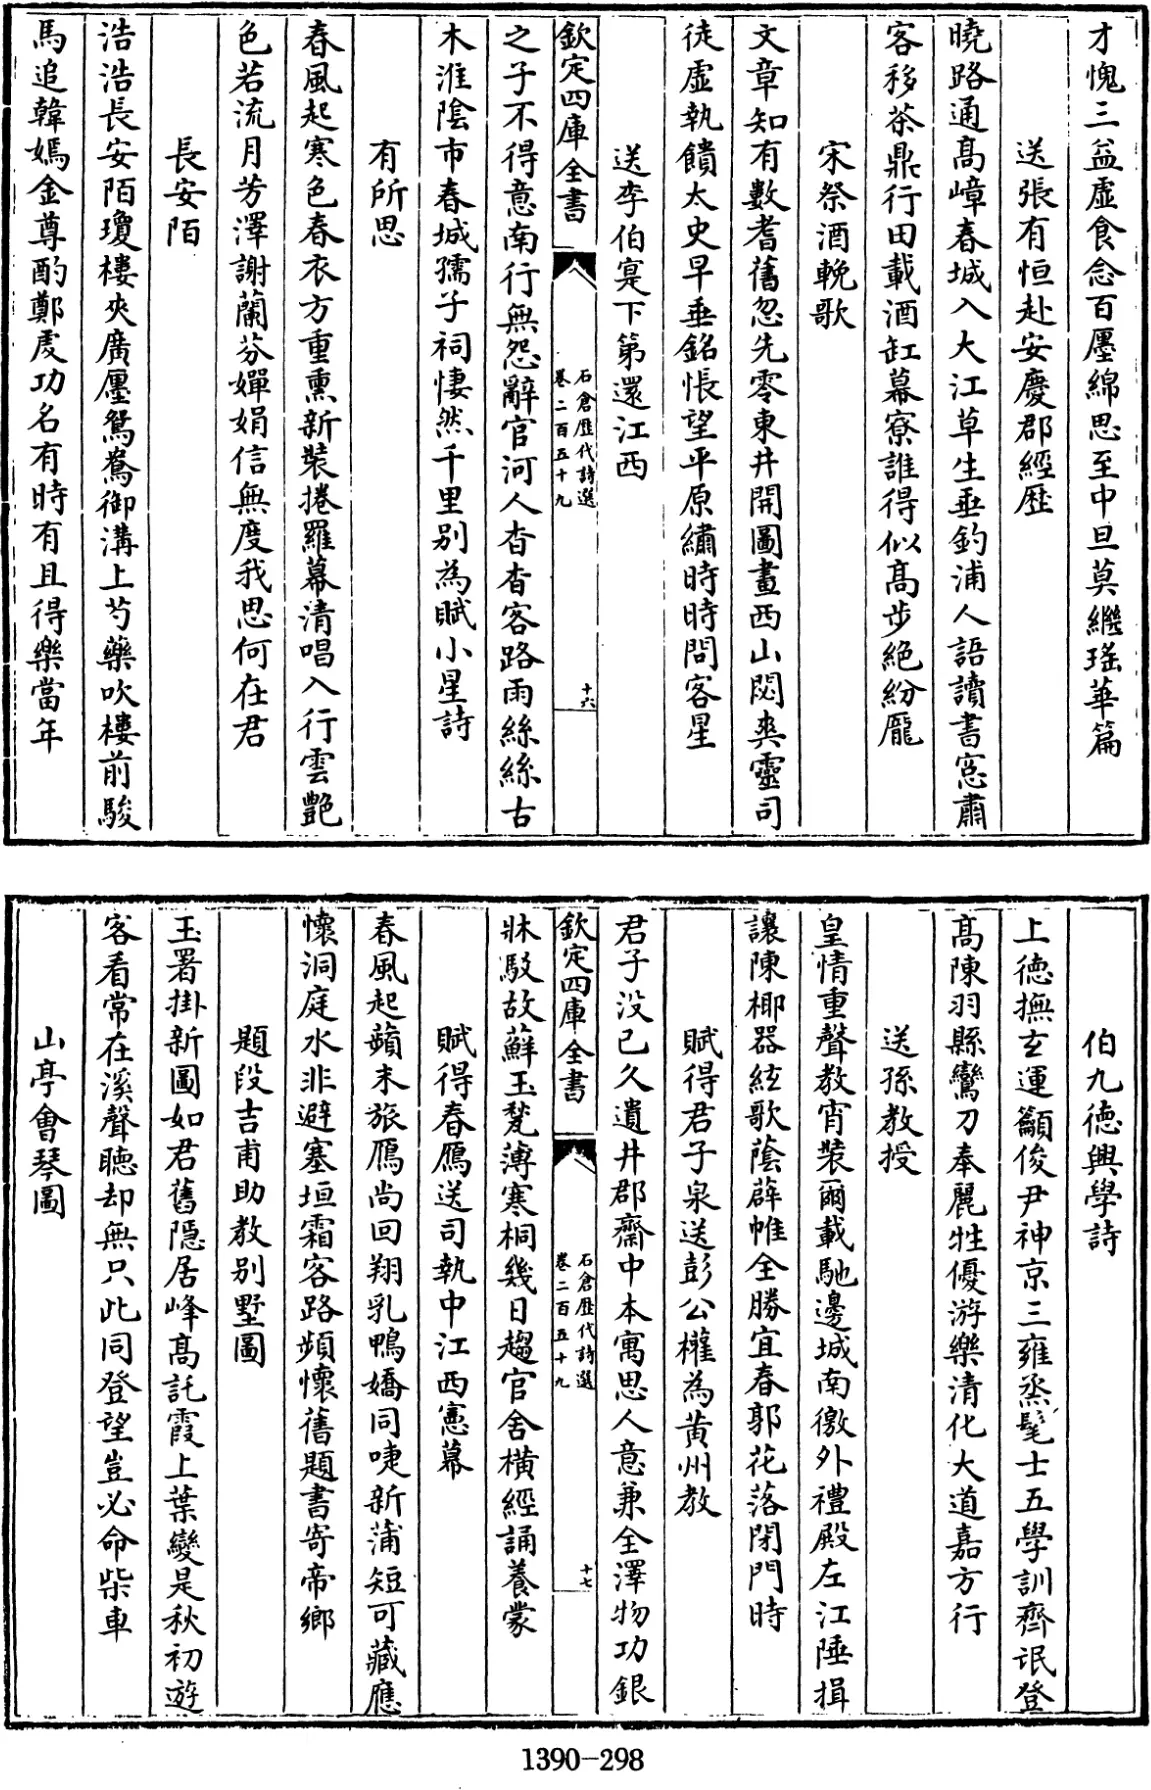 才愧三益虛食念百廛綿思至中旦莫繼瑤華篇
送張有恒赴安慶郡經歷
曉路通高嶂春城入大江草生垂釣浦人語讀書窓肅
客移茶鼎行田載酒缸幕寮誰得似高步絶紛厖
宋祭酒輓歌
文章知有數耆舊忽先零東井開圖畫西山閟爽靈司
徒虛執饋太史早垂銘悵望平原繡時時問客星
送李伯寔下第還江西
欽定四庫全書
石倉歷代詩選
卷二百五十九
十六
之子不得意南行無怨辭官河人杳杳客路雨絲絲古
木淮陰市春城孺子祠悽然千里别為賦小星詩
有所思
春風起寒色春衣方重熏新裝捲羅幕清唱入行雲艷
色若流月芳澤謝蘭芬嬋娟信無度我思何在君
長安陌
浩浩長安陌瓊樓夾廣廛鴛鴦御溝上芍藥吹樓前駿
馬追韓嫣金尊酌鄭虔功名有時有且得樂當年
伯九德興學詩
上德撫玄運籲俊尹神京三雍烝髦士五學訓齊氓登
高陳羽縣鸞刀奉麗牲優游樂清化大道嘉方行
送孫教授
皇情重聲教宵裝爾載馳邊城南徼外禮殿左江陲揖
讓陳椰器絃歌蔭薜帷全勝宜春郭花落閉門時
賦得君子泉送彭公權為黄州教
君子没已久遺井郡齋中本寓思人意兼全澤物功銀
牀馺故蘚玉甃溥寒桐幾日趨官舍横經誦養蒙
欽定四庫全書
石倉歷代詩選
卷二百五十九
十七
賦得春鴈送司執中江西憲幕
春風起蘋末旅鴈尚回翔乳鴨嬌同唼新蒲短可藏應
懷洞庭水非避塞垣霜客路頻懷舊題書寄帝鄉
題段吉甫助教别墅圖
玉署掛新圖如君舊隱居峰高託霞上葉變是秋初遊
客看常在溪聲聴却無只此同登望豈必命柴車
山亭會琴圖
1390-298